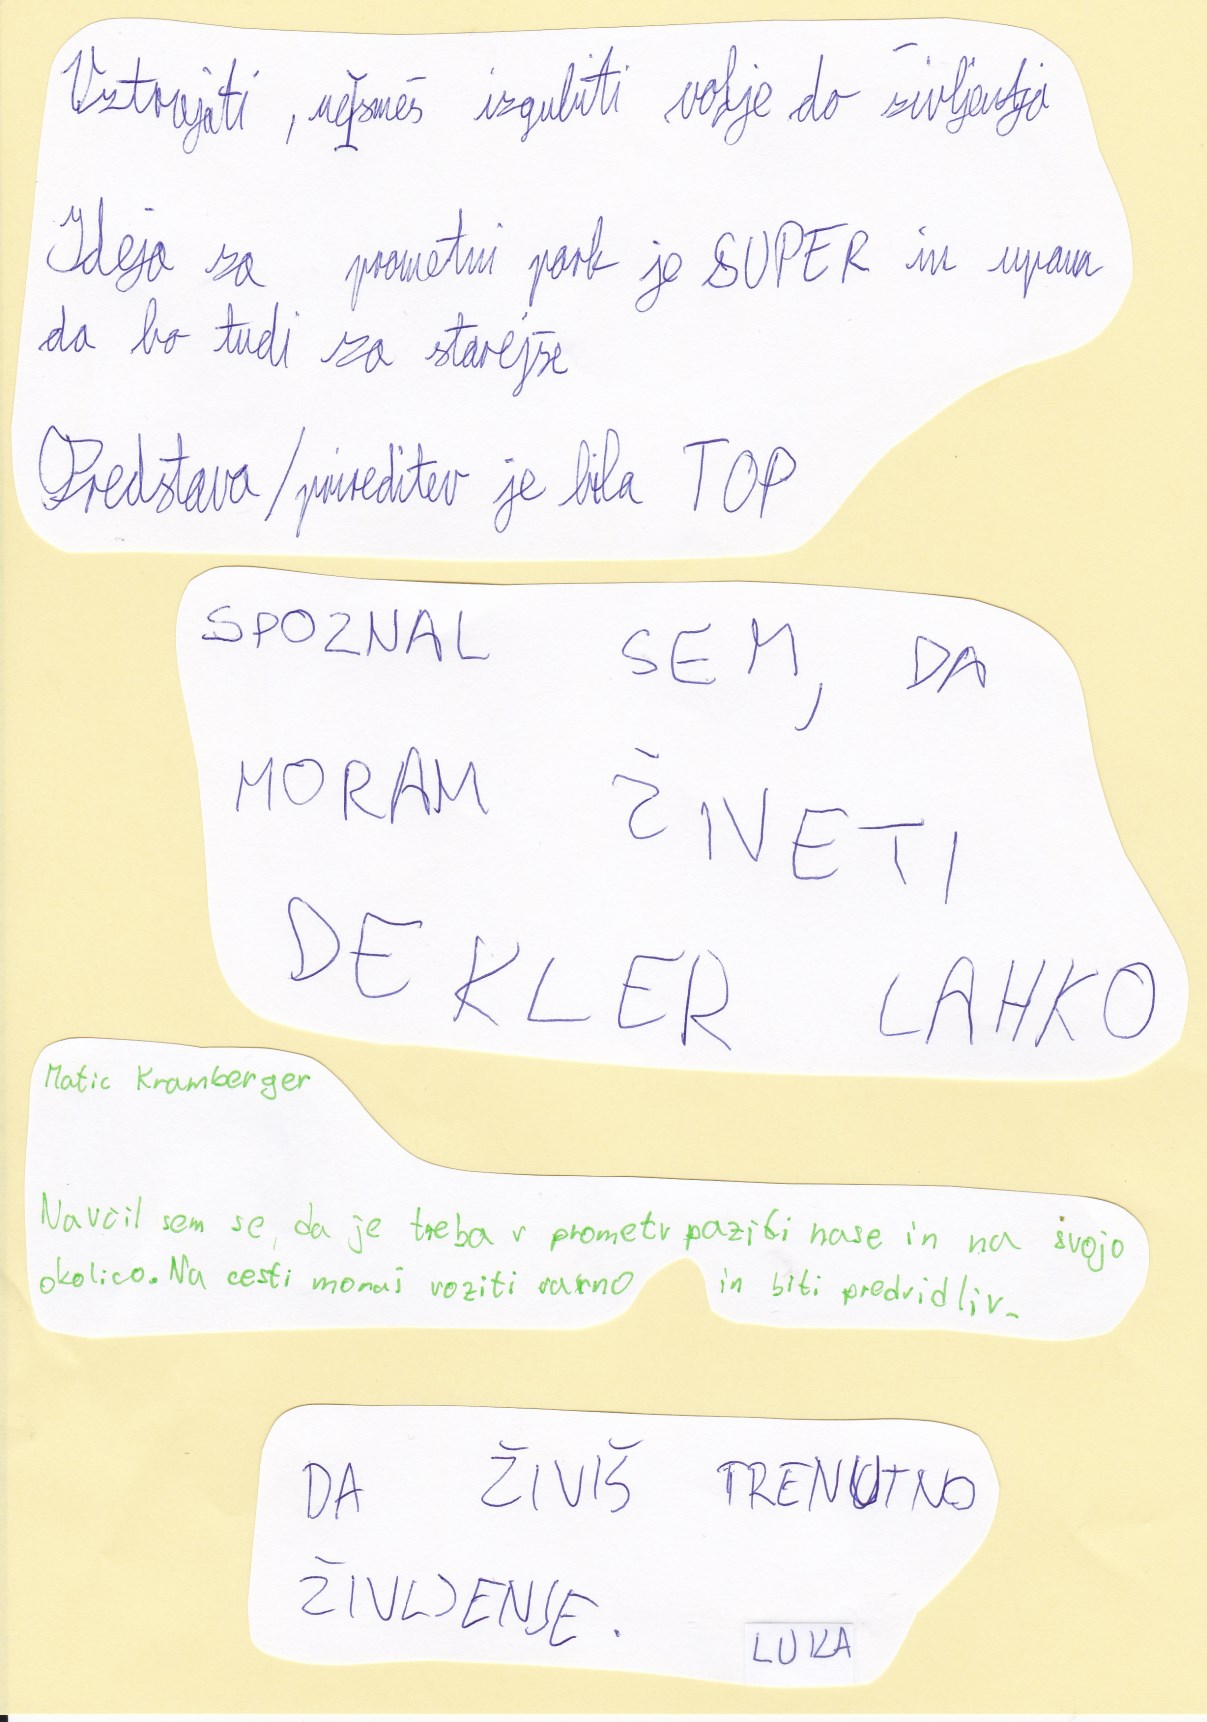 Vztrajati, nesmeš izgubiti volje do življenja
Ideja za prometni park je SUPER in upam
da bo tudi za starejše
Predstava/prireditev je bila TOP
SPOZNAL SEM, DA
MORAM ŽIVETI
DEKLER LAHKO
Matic Kramberger
Navčil sem se, da je treba v prometv paziti nase in na svojo
okolico. Na cesti moraš voziti varno in biti predvidliv.
DA ŽIVIŠ TRENUTNO
ŽIVLJENJE.
LUKA